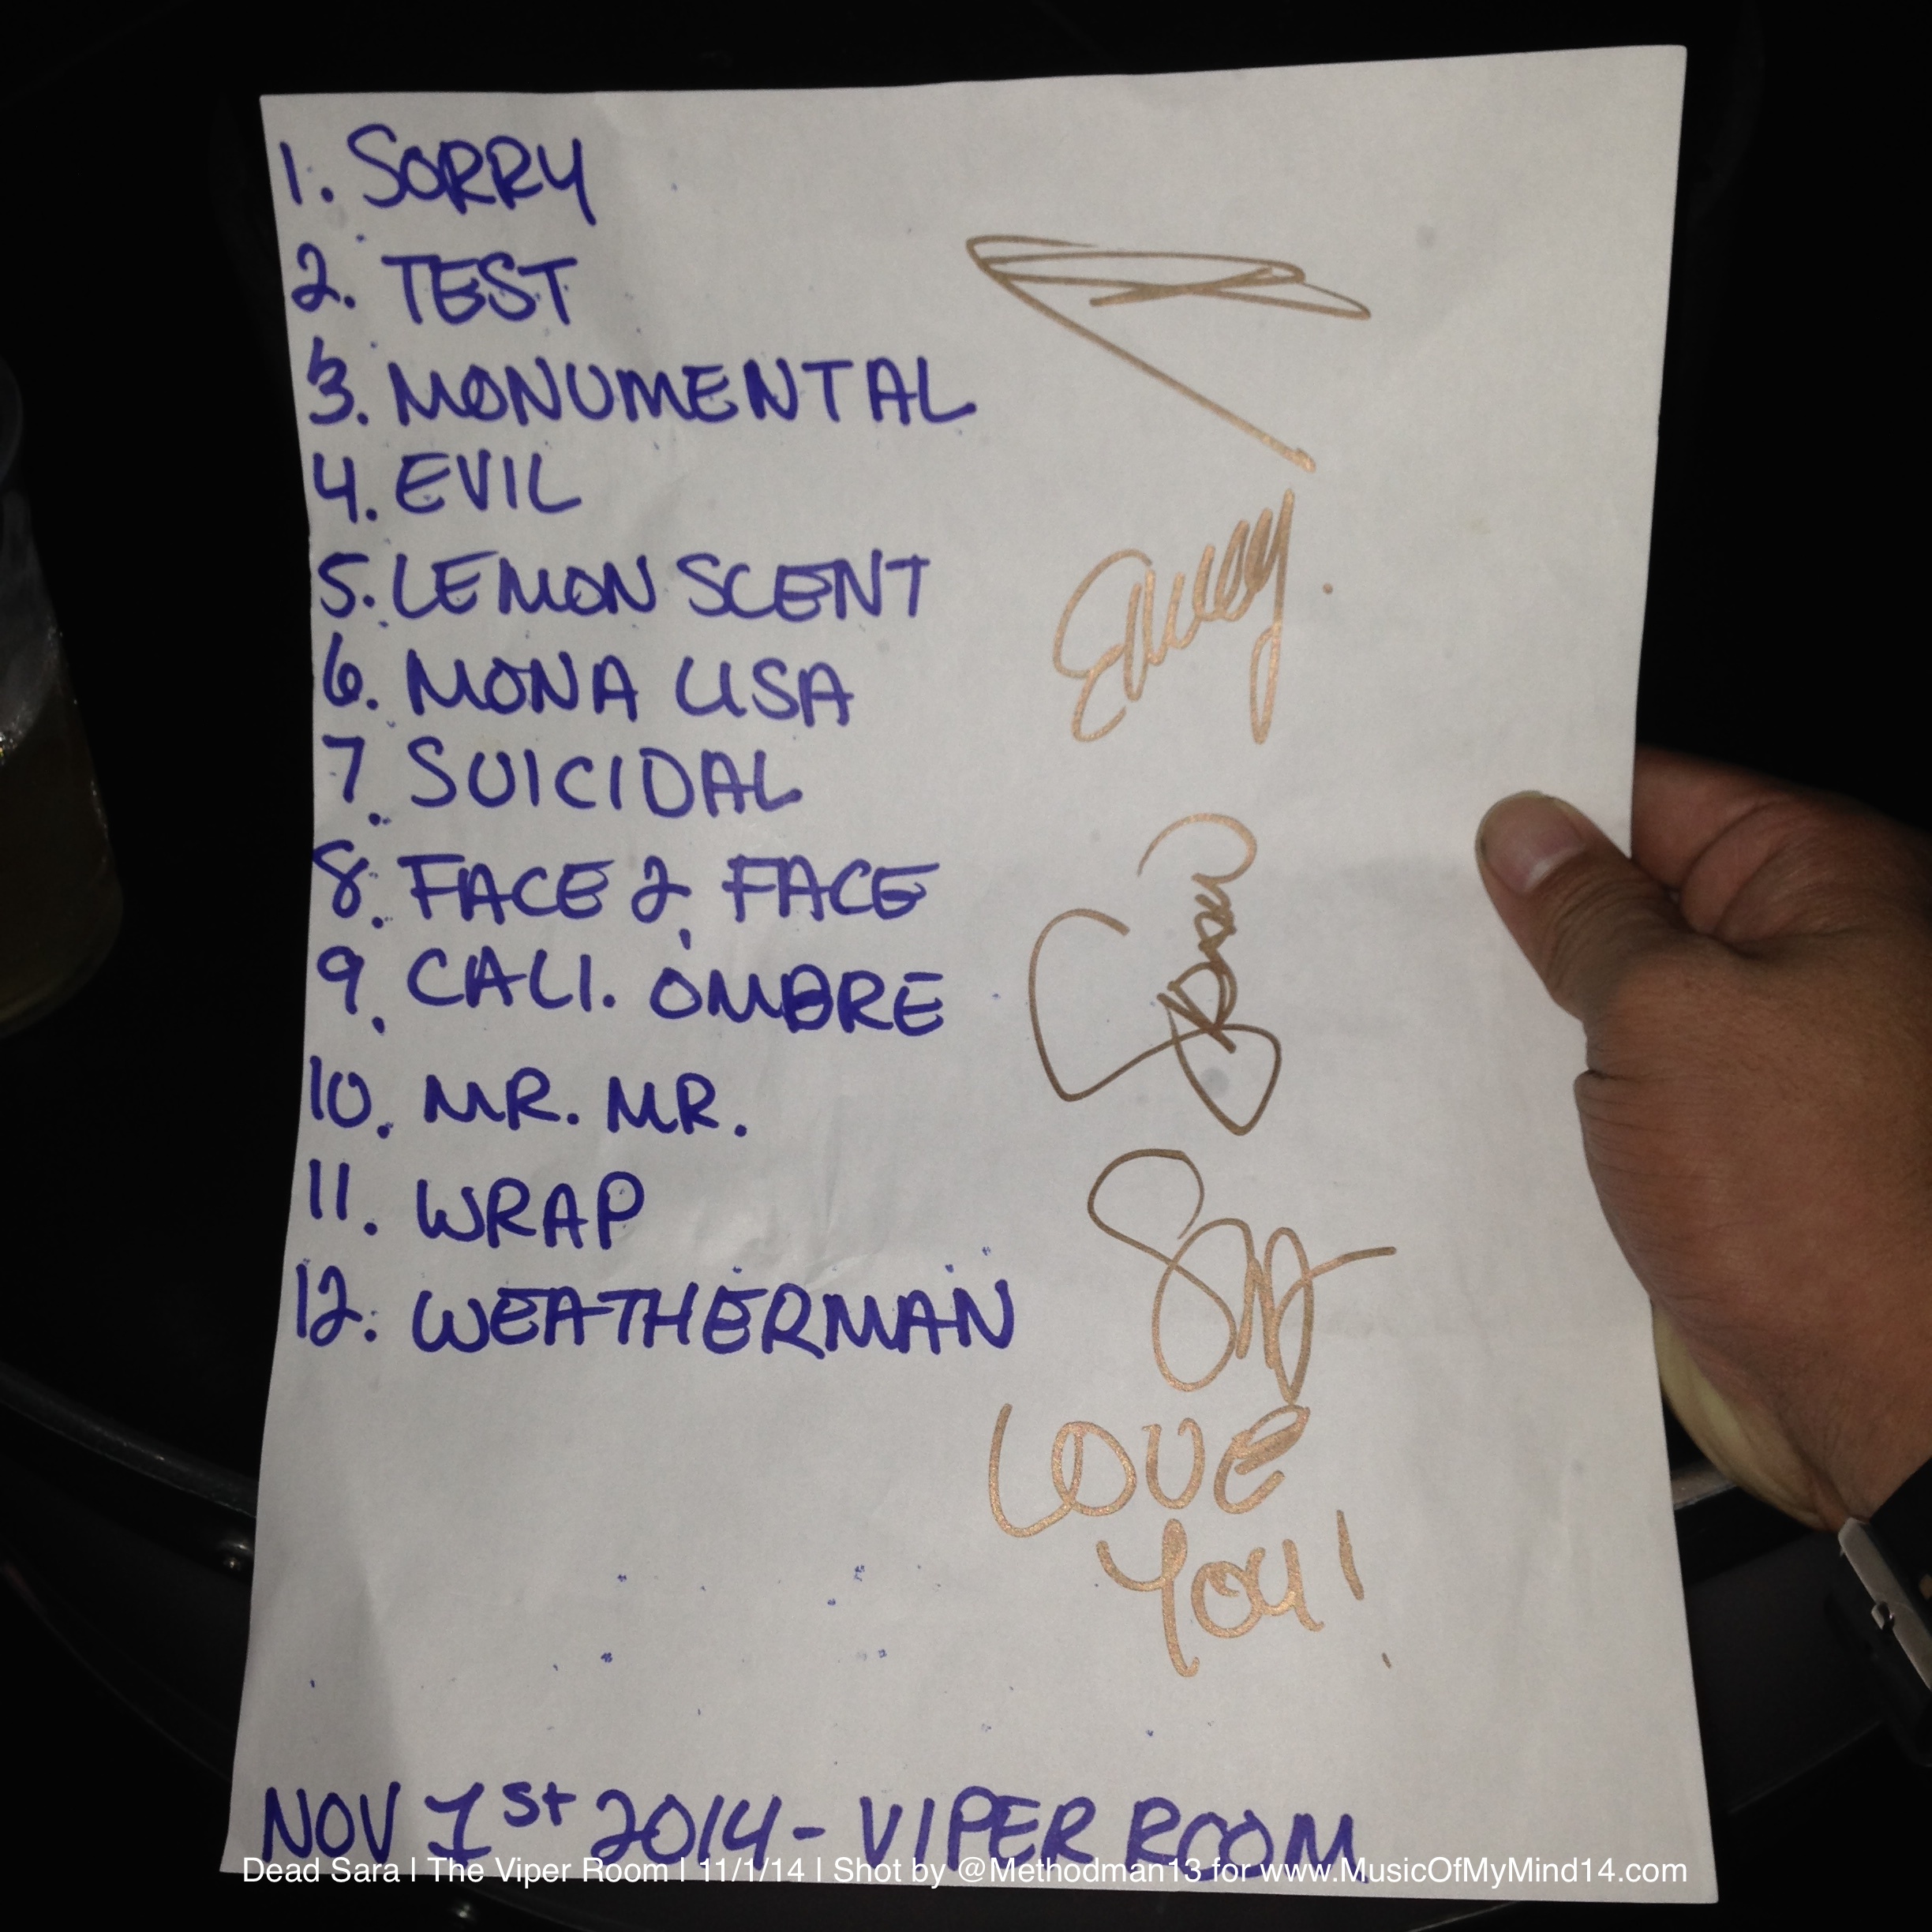 1. SORRY
2. TEST
3. MONUMENTAL
4. EVIL
5. LEMON SCENT
6. MONA USA
7. SUICIDAL
8. FACE 2 FACE
9. CALI. OMBRE
10. MR. MR.
11. WRAP
12. WEATHERMAN
LOVE
YOU!
NOV 1st 2014 - VIPER ROOM
Dead Sara | The Viper Room | 11/1/14 | Shot by @Methodman13 for www.MusicOfMyMind14.com